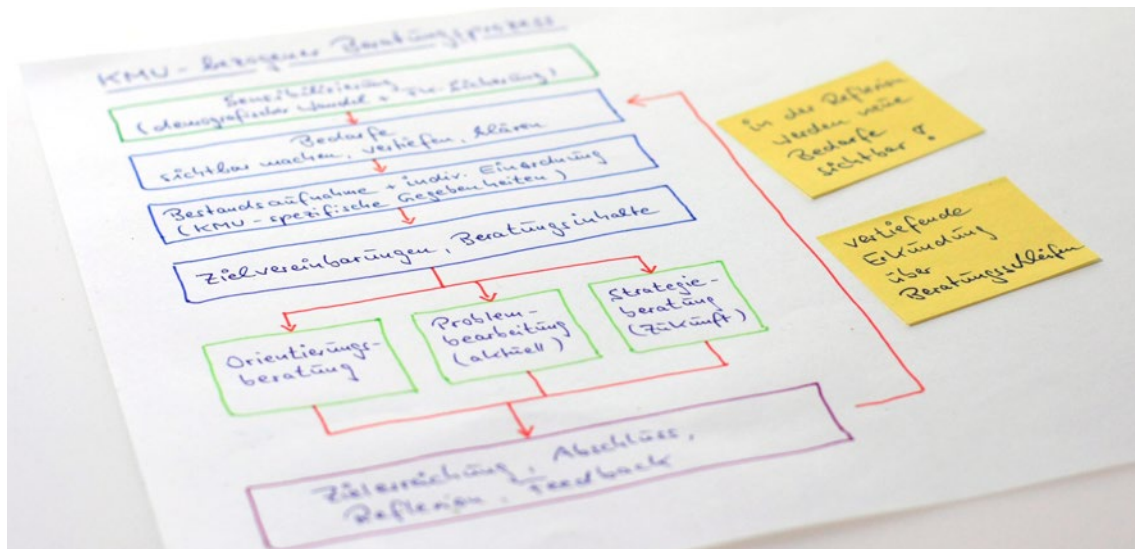 KMU - bezogener Beratungsprozess
Sensibilisierung
(demografischer Wandel + FK-Sicherung)
Bedarfe
sichtbar machen, vertiefen, klären
Bestandsaufnahme + indiv. Einordnung
(KMU-spezifische Gegebenheiten)
Zielvereinbarungen, Beratungsinhalte
Orientierungs-
beratung
Problem-
bearbeitung
(aktuell)
Strategie-
beratung
(Zukunft)
Zielerreichung, Abschluss,
Reflexion, Feedback
in der Reflexion
werden neue
Bedarfe
sichtbar!
vertiefende
Erkundung
über
Beratungsschleifen